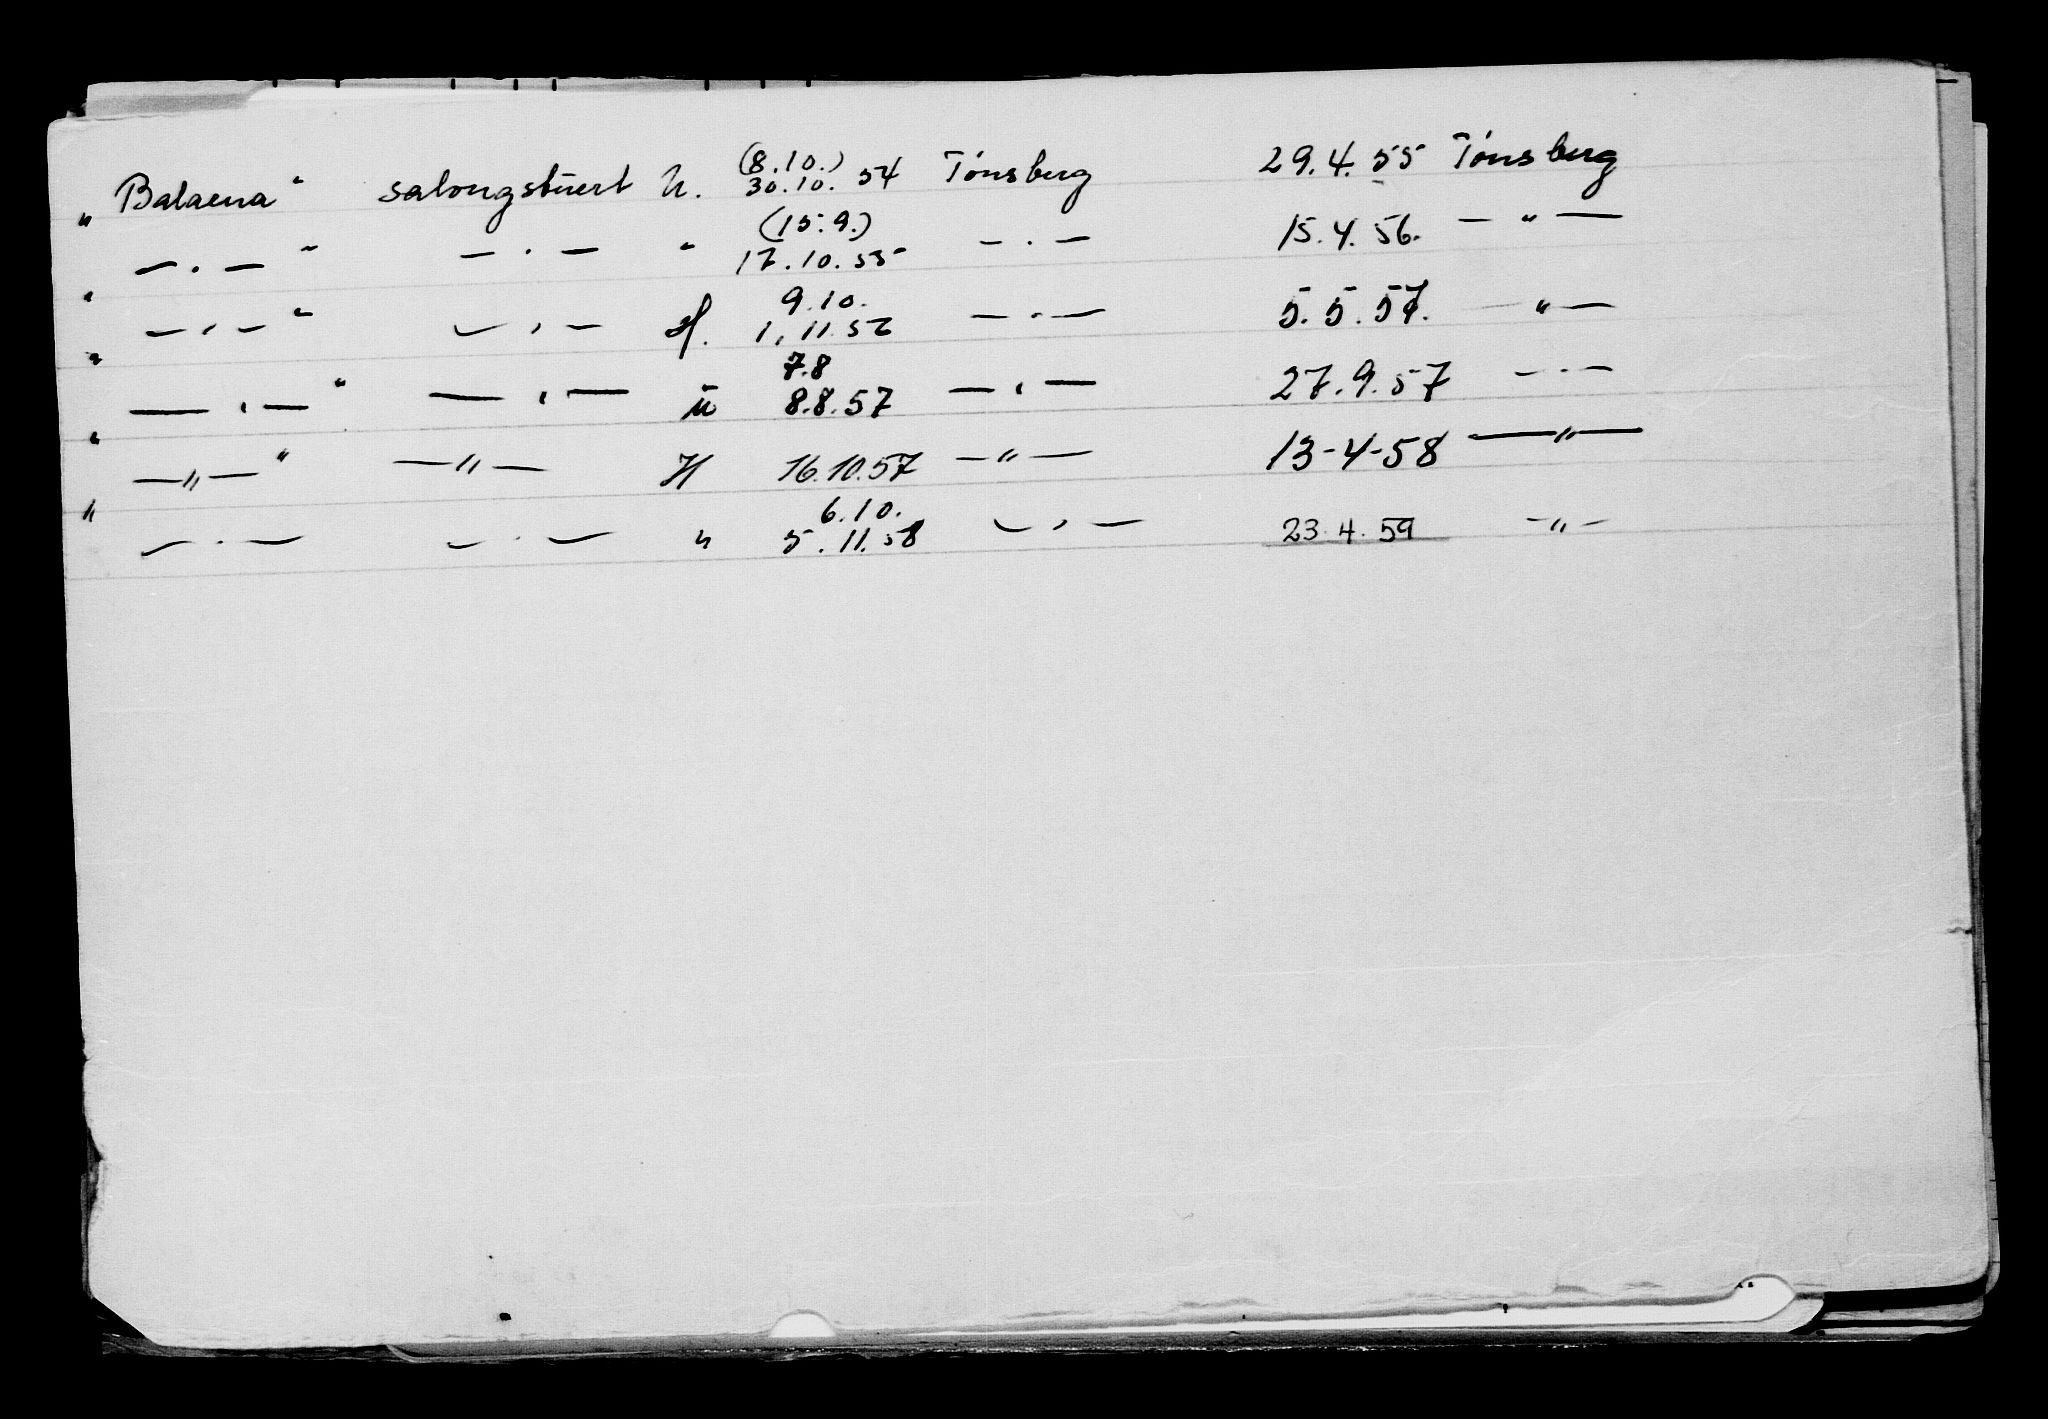 (8.10.)
„ Balaena “ salongstuert U. 30.10. 54 Tønsberg 29.4. 55 Tønsberg
(15.9.)
— . — “ — . — “ 17.10.55 — . — 15.4.56. — “ —
9.10.
“ — , — “ — , — H. 1,11.56 — . — 5.5.57. — “ —
7.8
“ — , — “ — , — u 8.8.57 — , — 27.9.57 — . —
“ — „ — “ — „ — H 16.10.57 — „ — 13-4-58 — „ —
6.10.
„ — . — — . — “ 5.11.58 — , — 23.4.59 — „ —